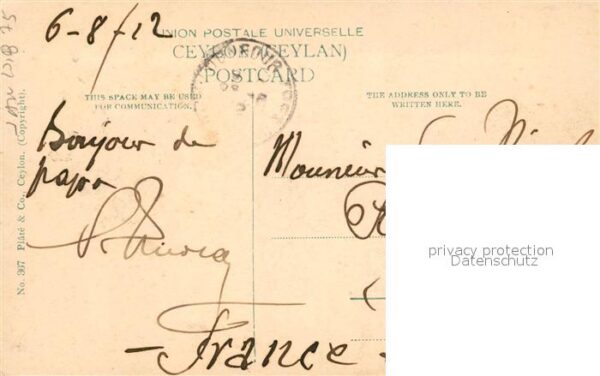 6-8/12
UNION POSTALE UNIVERSELLE
CEYLON (CEYLAN)
POSTCARD
THIS SPACE MAY BE USED
FOR COMMUNICATION.
THE ADDRESS ONLY TO BE
WRITTEN HERE.
Bonjour de
papa
Monsieur
- France -
No. 307 Plâté & Co., Ceylon. (Copyright).
privacy protection
Datenschutz